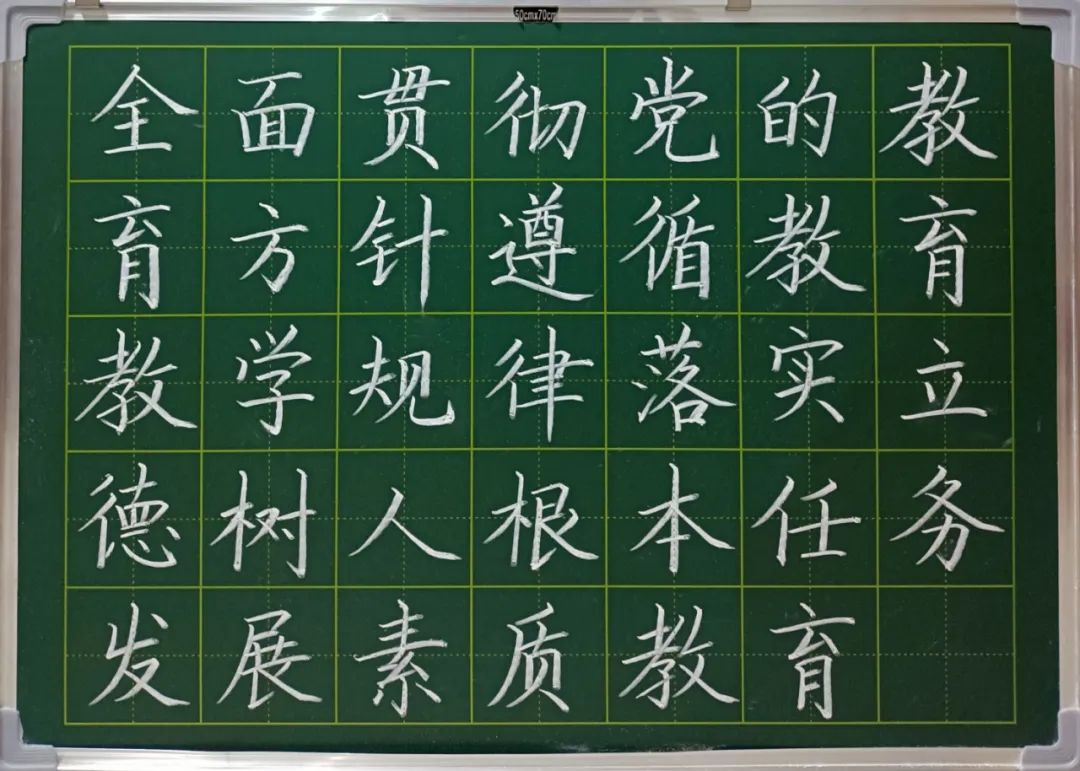 50cmx70cm
全面贯彻党的教
育方针遵循教育
教学规律落实立
德树人根本任务
发展素质教育